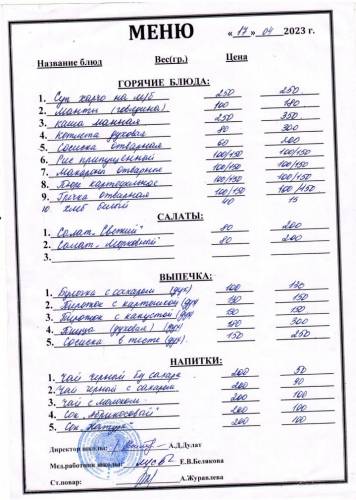 МЕНЮ «17» 04 2023 г.
Название блюд Вес(гр.) Цена
ГОРЯЧИЕ БЛЮДА:
1. Суп харчо на м/б 250 250
2. Манты (говядина) 100 180
3. Каша манная 250 350
4. Котлета духовая 80 300
5. Сосиска отварная 60 200
6. Рис припущенный 100/150 100/150
7. Макароны отварные 100/150 100/150
8. Пюре картофельное 100/150 100/150
9. Гречка отварная 100/150 100/150
10 хлеб белый 40 15
САЛАТЫ:
1. Салат „Свежий" 80 200
2. Салат „Морковный" 80 200
3.
ВЫПЕЧКА:
1. Булочка с сахаром (дух) 100 130
2. Пирожок с картошкой (дух) 130 150
3. Пирожок с капустой (дух) 130 150
4. Пицца (духовая) (дух) 300
5. Сосиска в тесте (дух) 150 250
НАПИТКИ:
1. Чай черный без сахара 200 50
2. Чай черный с сахаром 200 80
3. Чай с молоком 200 100
4. Сок „Абрикосовый" 200 100
5. Сок 200 100
Директор школы: А.Д.Дулат
Мед.работник школы: Е.В.Белякова
Ст.повар: А.Журавлева